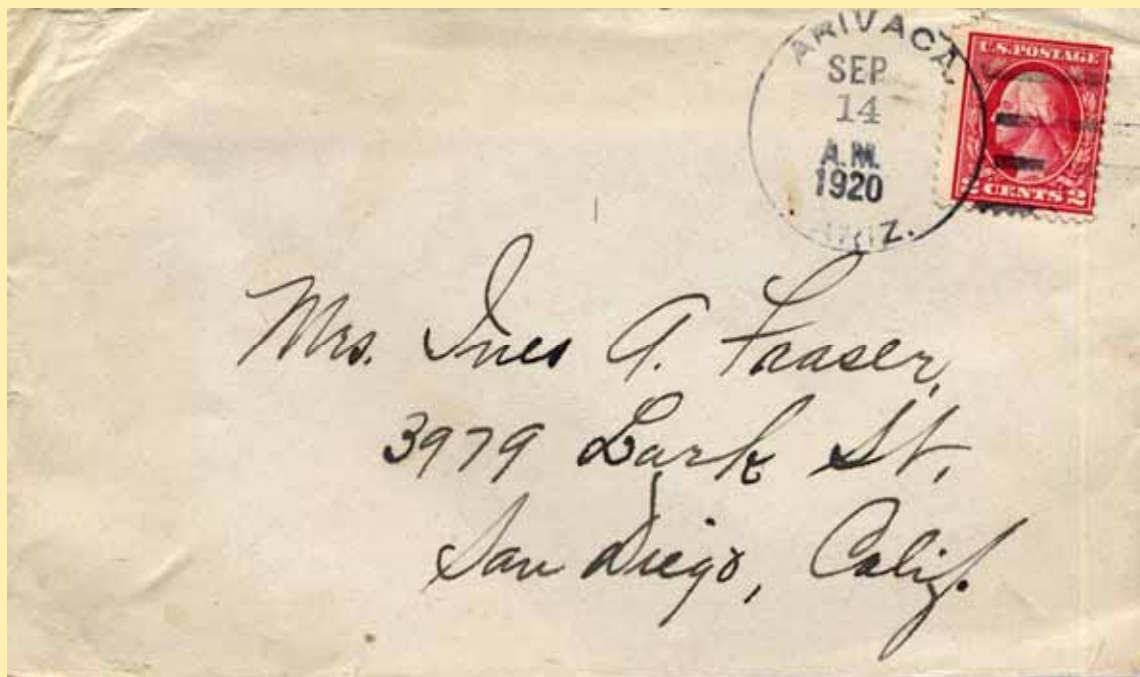 ARIVACA,
SEP
14
A.M.
1920
ARIZ.
U.S. POSTAGE
2 CENTS 2
Mrs. Ines A. Fraser,
3979 Lark St,
San Diego, Calif.